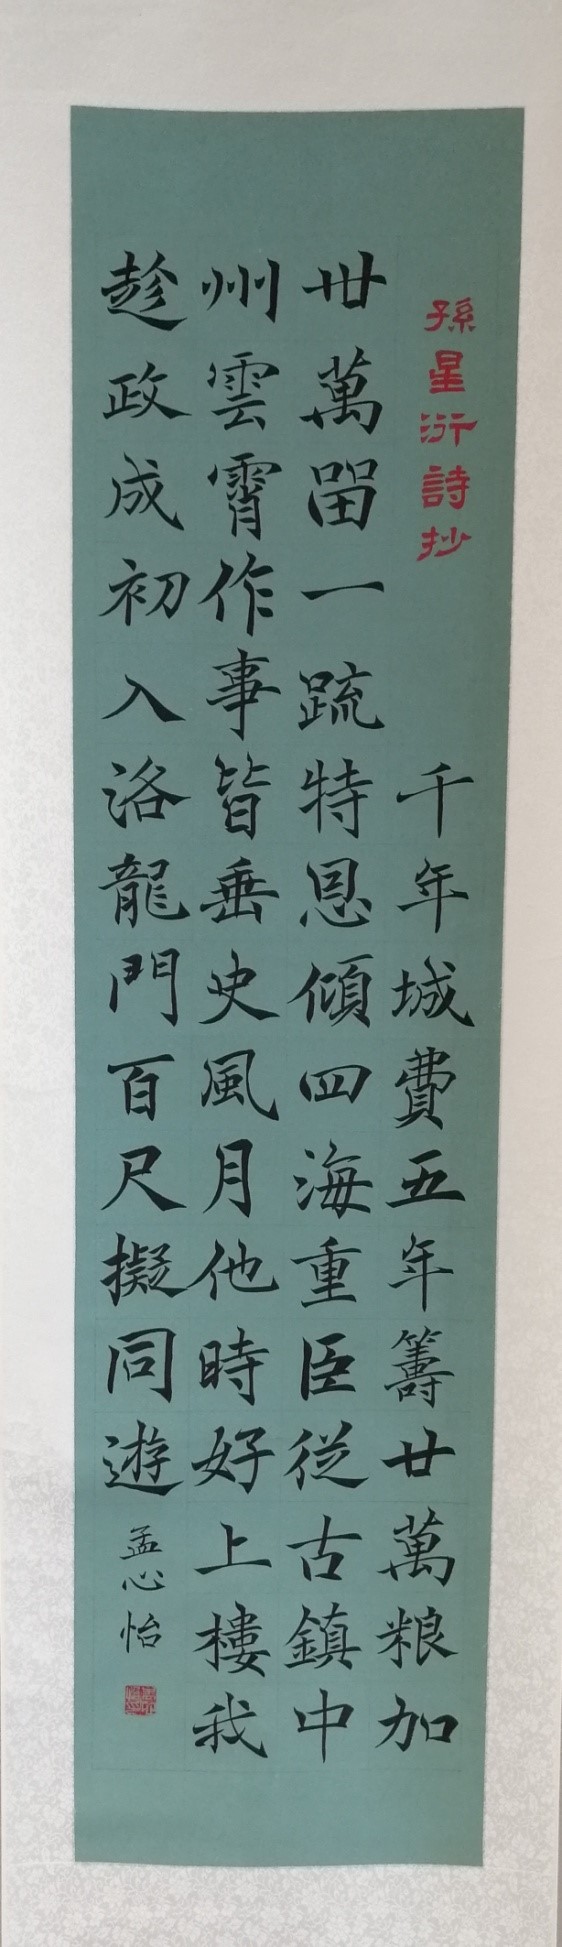 孫星衍詩抄
千年城費五年籌廿萬粮加
卅萬留一疏特恩傾四海重臣從古鎮中
州雲霄作事皆垂史風月他時好上樓我
趁政成初入洛龍門百尺擬同遊
孟心怡